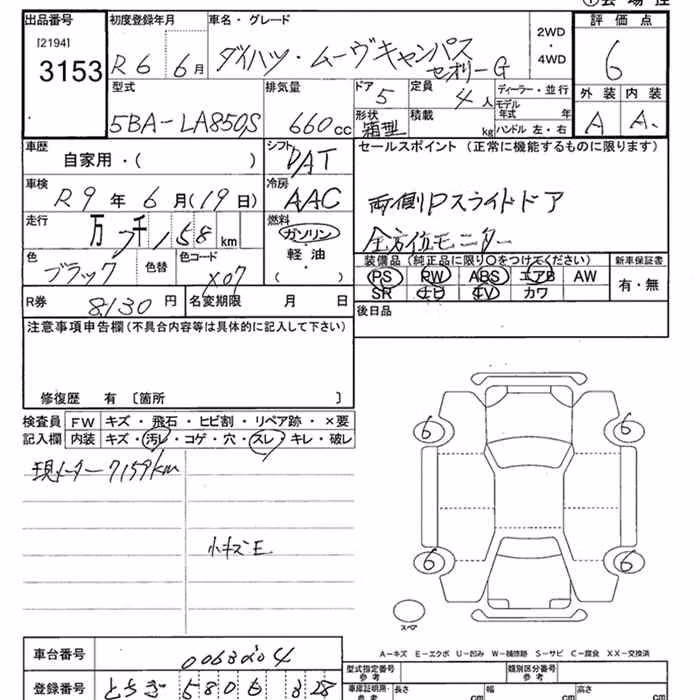 出品番号 初度登録年月 車名・グレード 2WD・4WD 評価点
[2194]
3153 R6 6月 ダイハツ・ムーヴキャンバス セオリーG 6
型式 排気量 ドア 5 定員 4人 ディーラー・並行 外装 内装
5BA-LA850S 660cc 形状 箱型 積載 kg モデル年式 年 ハンドル 左・右 A A
車歴 自家用・( ) シフト DAT セールスポイント (正常に機能するものに限ります)
車検 R9年6月(19日) 冷房 AAC 両側Pスライドドア
走行 万 千 7158km 燃料 ガソリン・軽油・( ) 全方位モニター
色 ブラック 色替 色コード X07 装備品(純正品に限り〇をつけてください) 新車保証書
PS PW ABS エアB AW 有・無
SR ナビ TV カワ
R券 8130円 名変期限 月 日 後日品
注意事項申告欄(不具合内容等は具体的に記入して下さい)
修復歴 有〔箇所 〕
検査員 FW キズ・飛石・ヒビ割・リペア跡・×要
記入欄 内装 キズ・汚レ・コゲ・穴・スレ・キレ・破レ
現メーター7159km
小キズE
6 6
6 6
スペア
A-キズ E-エクボ U-凹み W-補修跡 S-サビ C-腐食 XX-交換済
車台番号 0063204
型式指定番号 参考 類別区分番号 参考
登録番号 とちぎ 580 828
車庫証明用・参考 長さ cm 幅 cm 高さ cm